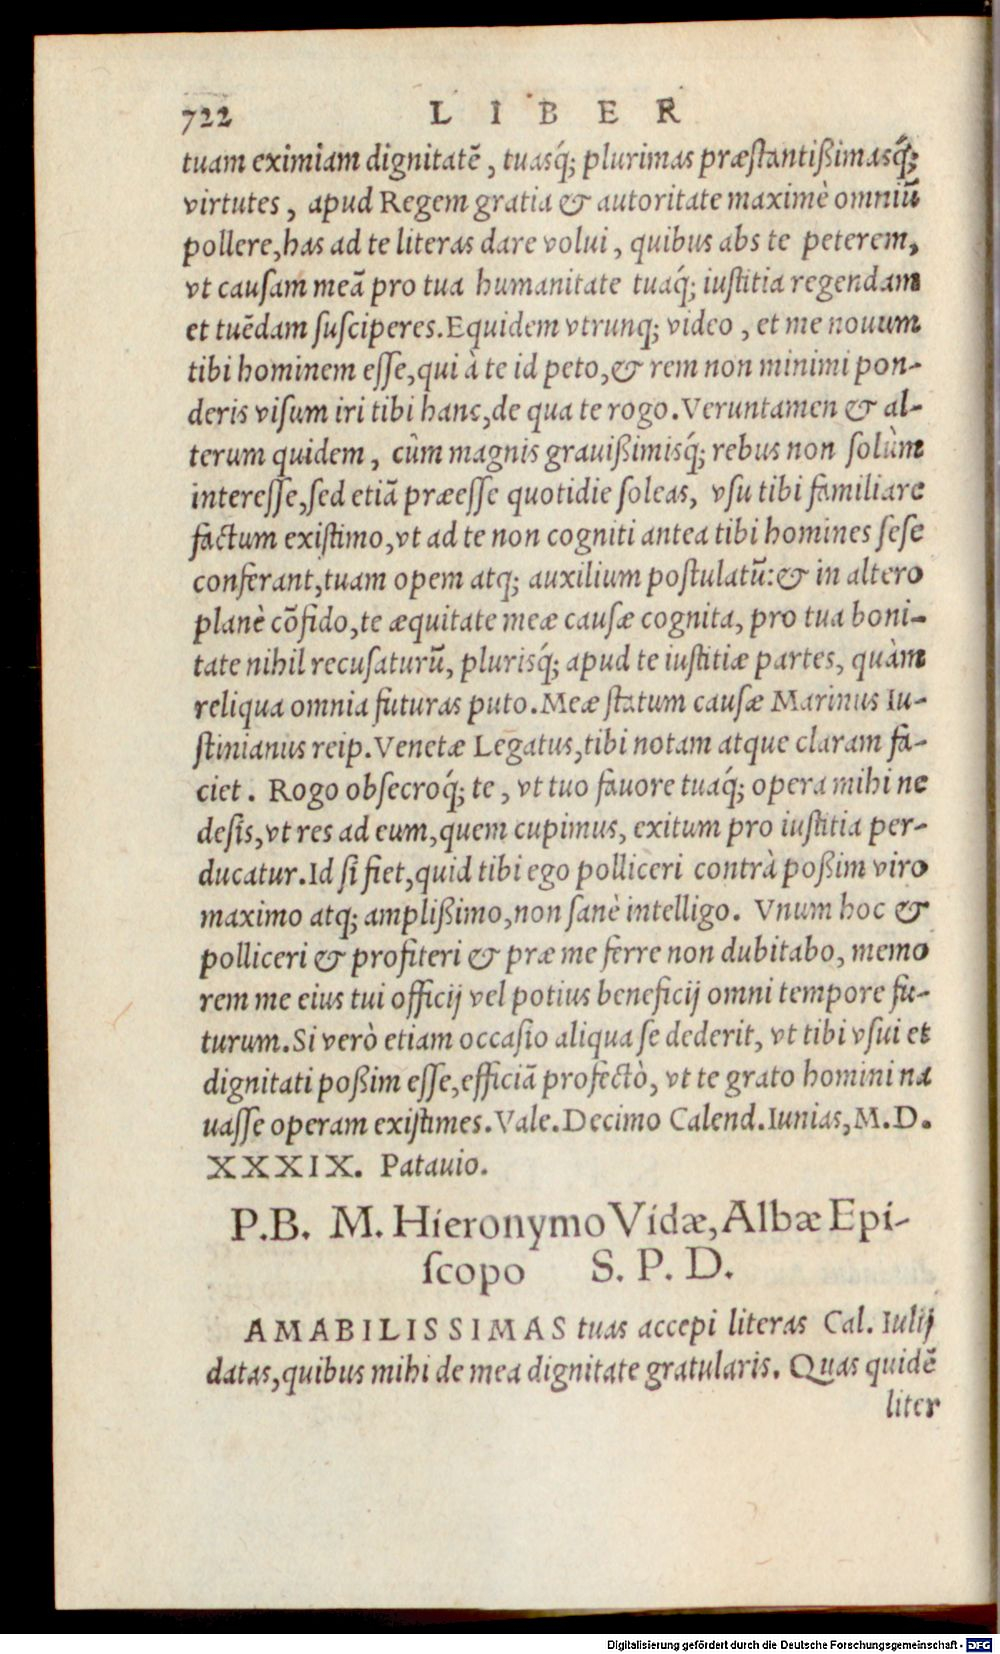 722 LIBER
tuam eximiam dignitatē, tuasq́; plurimas præstantißimasq́;
virtutes, apud Regem gratia & autoritate maximè omniū
pollere, has ad te literas dare volui, quibus abs te peterem,
vt causam meā pro tua humanitate tuaq́; iustitia regendam
et tuēdam susciperes. Equidem vtrunq; video, et me nouum
tibi hominem esse, qui à te id peto, & rem non minimi pon-
deris visum iri tibi hanc, de qua te rogo. Veruntamen & al-
terum quidem, cùm magnis grauißimisq́; rebus non solùm
interesse, sed etiā præesse quotidie soleas, vsu tibi familiare
factum existimo, vt ad te non cogniti antea tibi homines sese
conferant, tuam opem atq; auxilium postulatū: & in altero
planè cōfido, te æquitate meæ causæ cognita, pro tua boni-
tate nihil recusaturū, plurisq́; apud te iustitiæ partes, quàm
reliqua omnia futuras puto. Meæ statum causæ Marinus Iu-
stinianus reip. Venetæ Legatus, tibi notam atque claram fa-
ciet. Rogo obsecroq́; te, vt tuo fauore tuaq́; opera mihi ne
desis, vt res ad eum, quem cupimus, exitum pro iustitia per-
ducatur. Id si fiet, quid tibi ego polliceri contrà poßim viro
maximo atq; amplißimo, non sanè intelligo. Vnum hoc &
polliceri & profiteri & præ me ferre non dubitabo, memo
rem me eius tui officij vel potius beneficij omni tempore fu-
turum. Si verò etiam occasio aliqua se dederit, vt tibi vsui et
dignitati poßim esse, efficiā profectò, vt te grato homini na
uasse operam existimes. Vale. Decimo Calend. Iunias, M.D.
XXXIX. Patauio.
P.B. M. Hieronymo Vidæ, Albæ Epi-
scopo S. P. D.
AMABILISSIMAS tuas accepi literas Cal. Iulij
datas, quibus mihi de mea dignitate gratularis. Quas quidē
liter
Digitalisierung gefördert durch die Deutsche Forschungsgemeinschaft - DFG